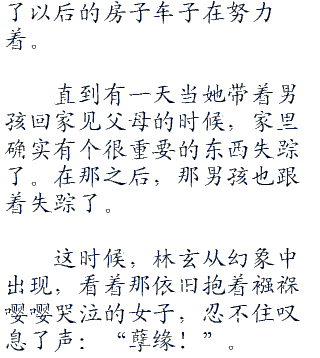 了以后的房子车子在努力
着。
直到有一天当她带着男
孩回家见父母的时候，家里
确实有个很重要的东西失踪
了。在那之后，那男孩也跟
着失踪了。
这时候，林玄从幻象中
出现，看着那依旧抱着襁褓
嘤嘤哭泣的女子，忍不住叹
息了声：“孽缘！”。